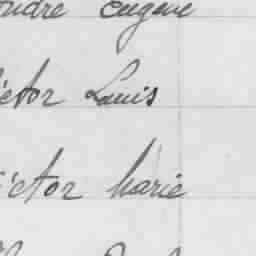 ndre Eugene
ictor Louis
ictor Marie